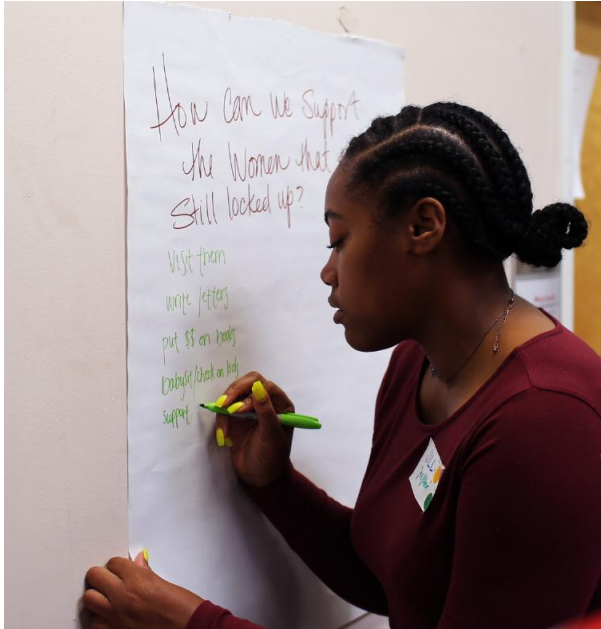 How Can We Support
the Women that
Still locked up?
Visit them
write letters
put $$ on books
babysit/check on kids
support